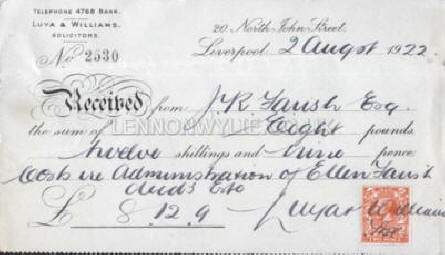 TELEPHONE 4768 BANK.
LUYA & WILLIAMS,
SOLICITORS.
20, North John Street,
Liverpool, 2 Augst 1922
No 2530
Received from J. R. Esq.
the sum of Eight pounds
LENNONWYLIE.CO.UK
twelve shillings and nine pence
Costs re Administration of Ellen
decd Este
£ 8. 12. 9 Luya & Williams